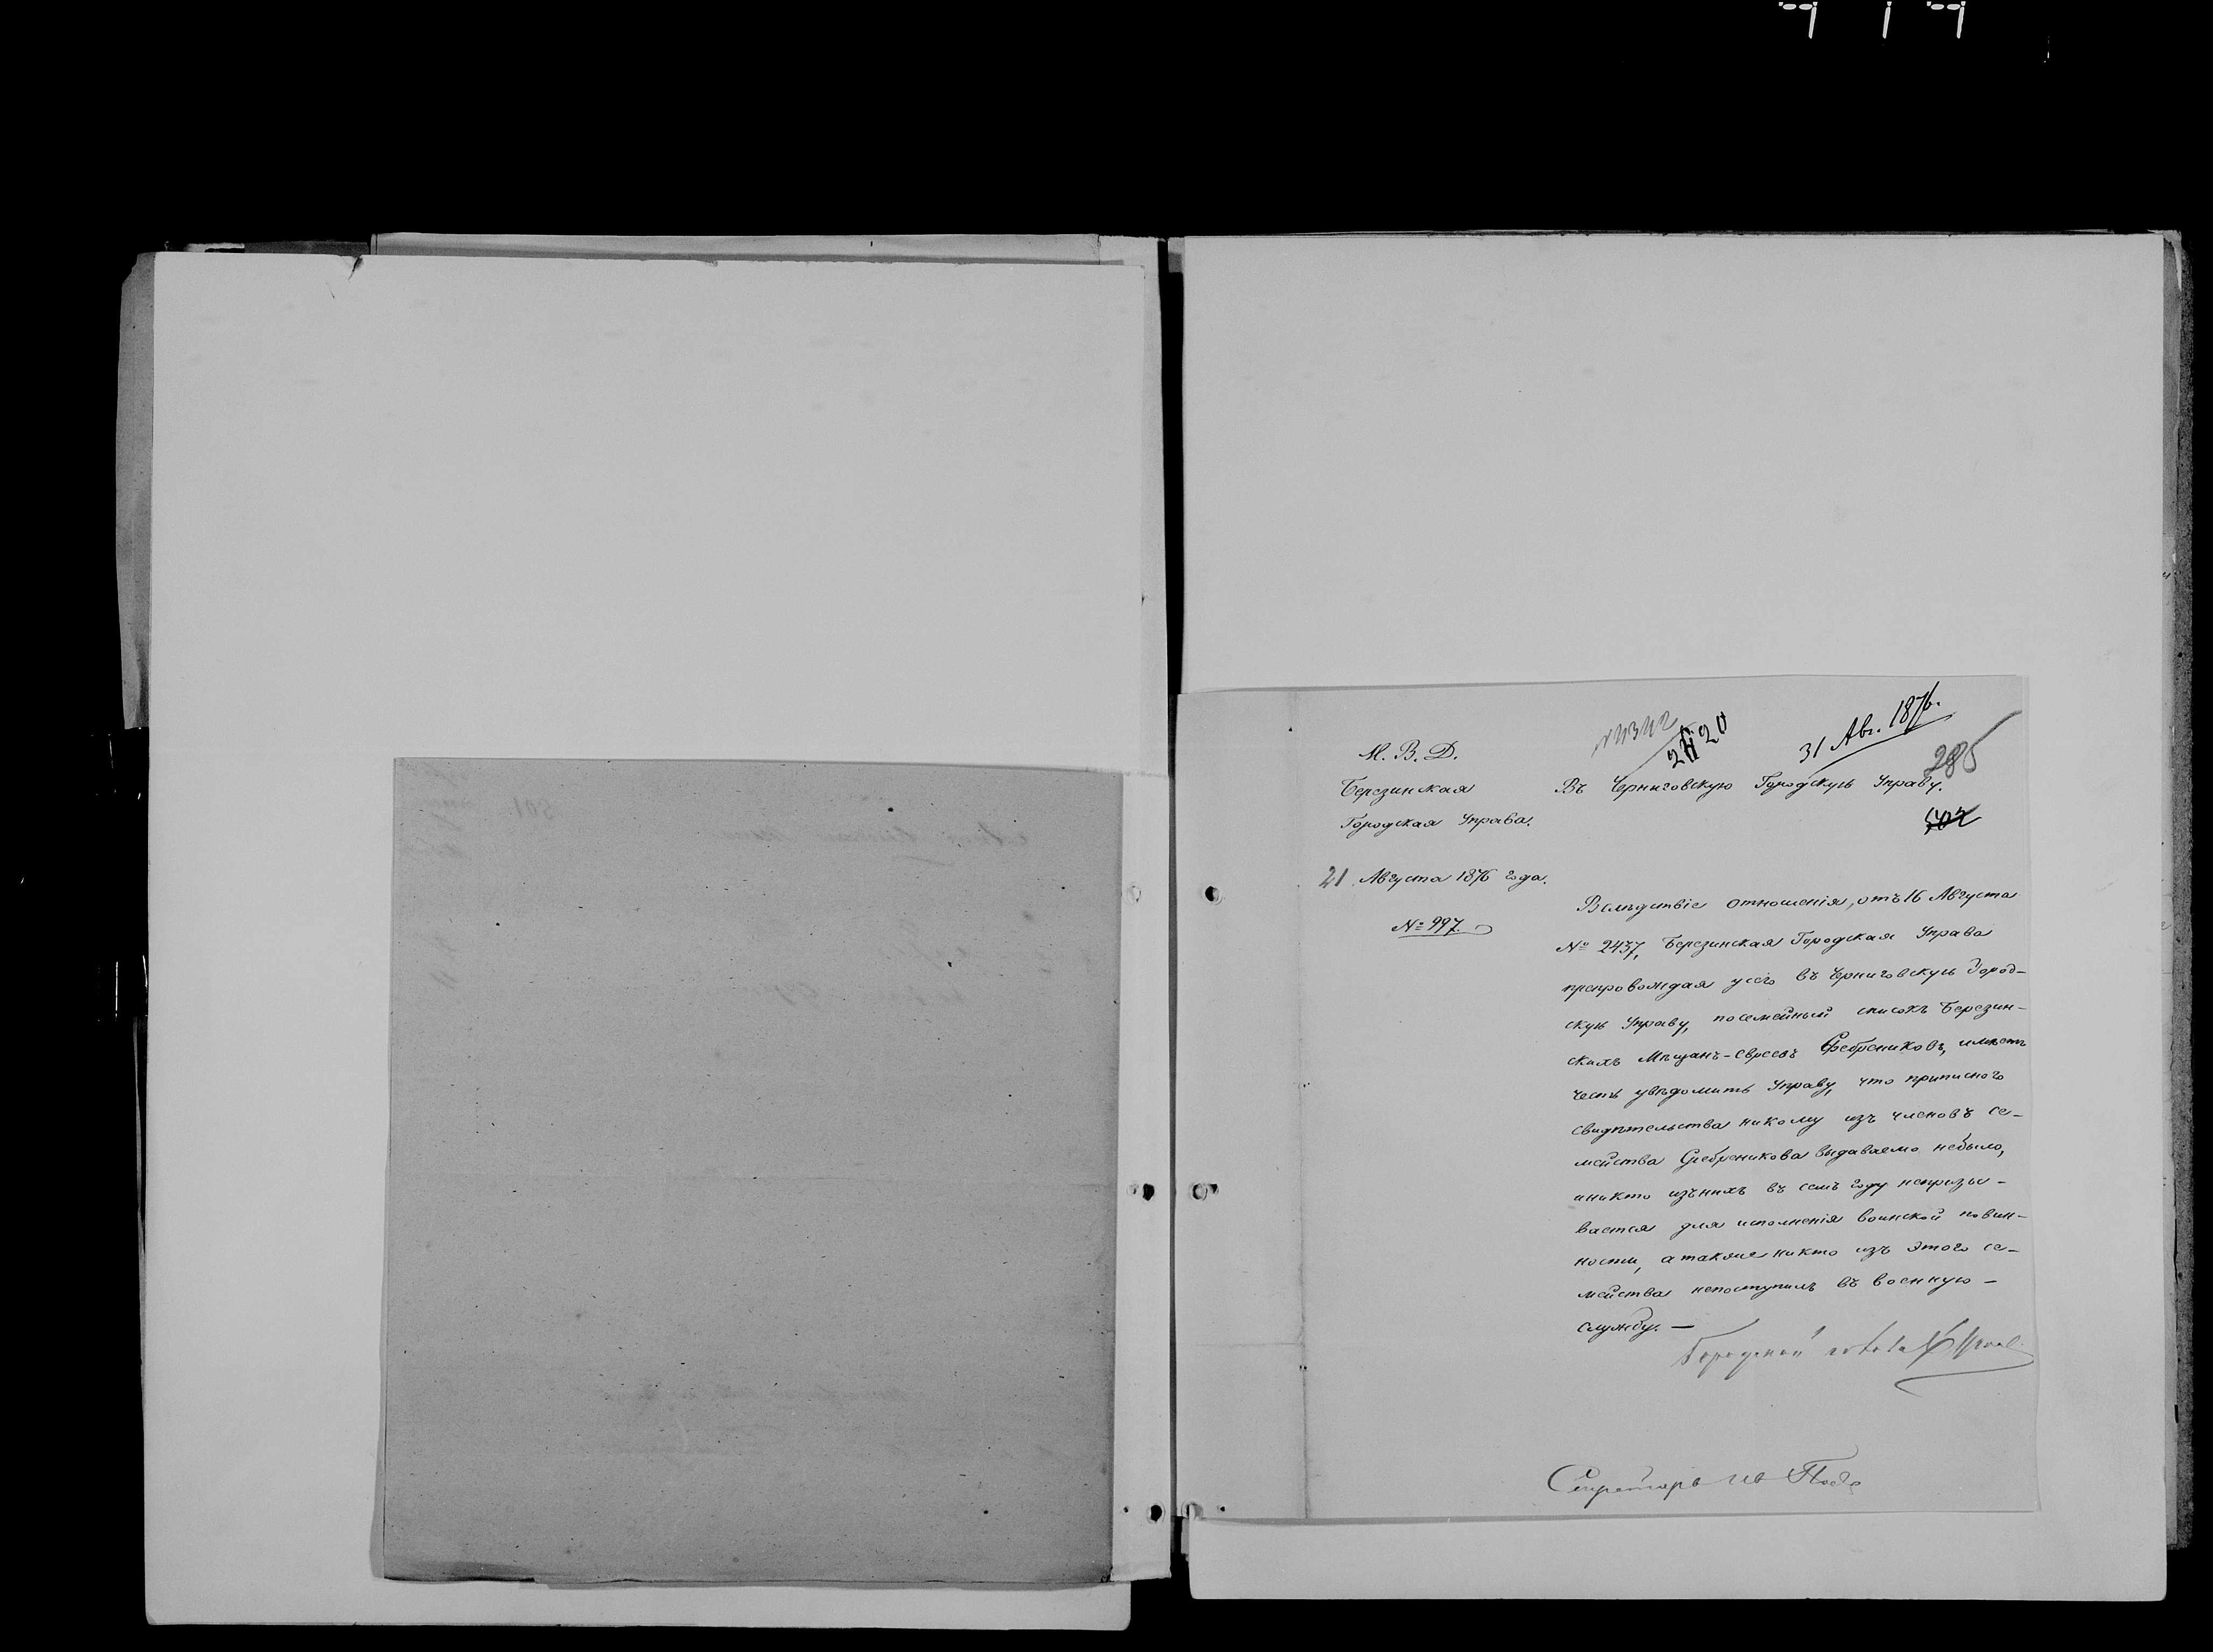 № 2342
2420
31 Авг. 1876.
285
М. В. Д.
Березинская
Городская Управа.
Въ Черниговскую Городскую Управу.
502
21 Августа 1876 года.
№ 997.
Вслѣдствіе отношенія, отъ 16 Августа
№ 2437, Березинская Городская Управа
препровождая у сего въ Черниговскую Город-
скую Управу, посемейный списокъ Березин-
скихъ Мѣщанъ-Евреевъ Сребрениковъ, имѣетъ
честь увѣдомить Управу, что приписного
свидѣтельства никому изъ членовъ се-
мейства Сребреникова выдаваемо небыло,
иникто изънихъ въ семъ году непризы-
вается для исполненія воинской повин-
ности, атакже никто изъ этого се-
мейства непоступилъ въ военную -
службу. —
Городской голова
Секретарь
501